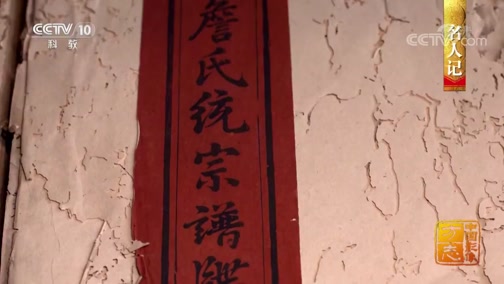 CCTV 10
科教
詹氏统宗谱
CCTV.com
名人记
方志